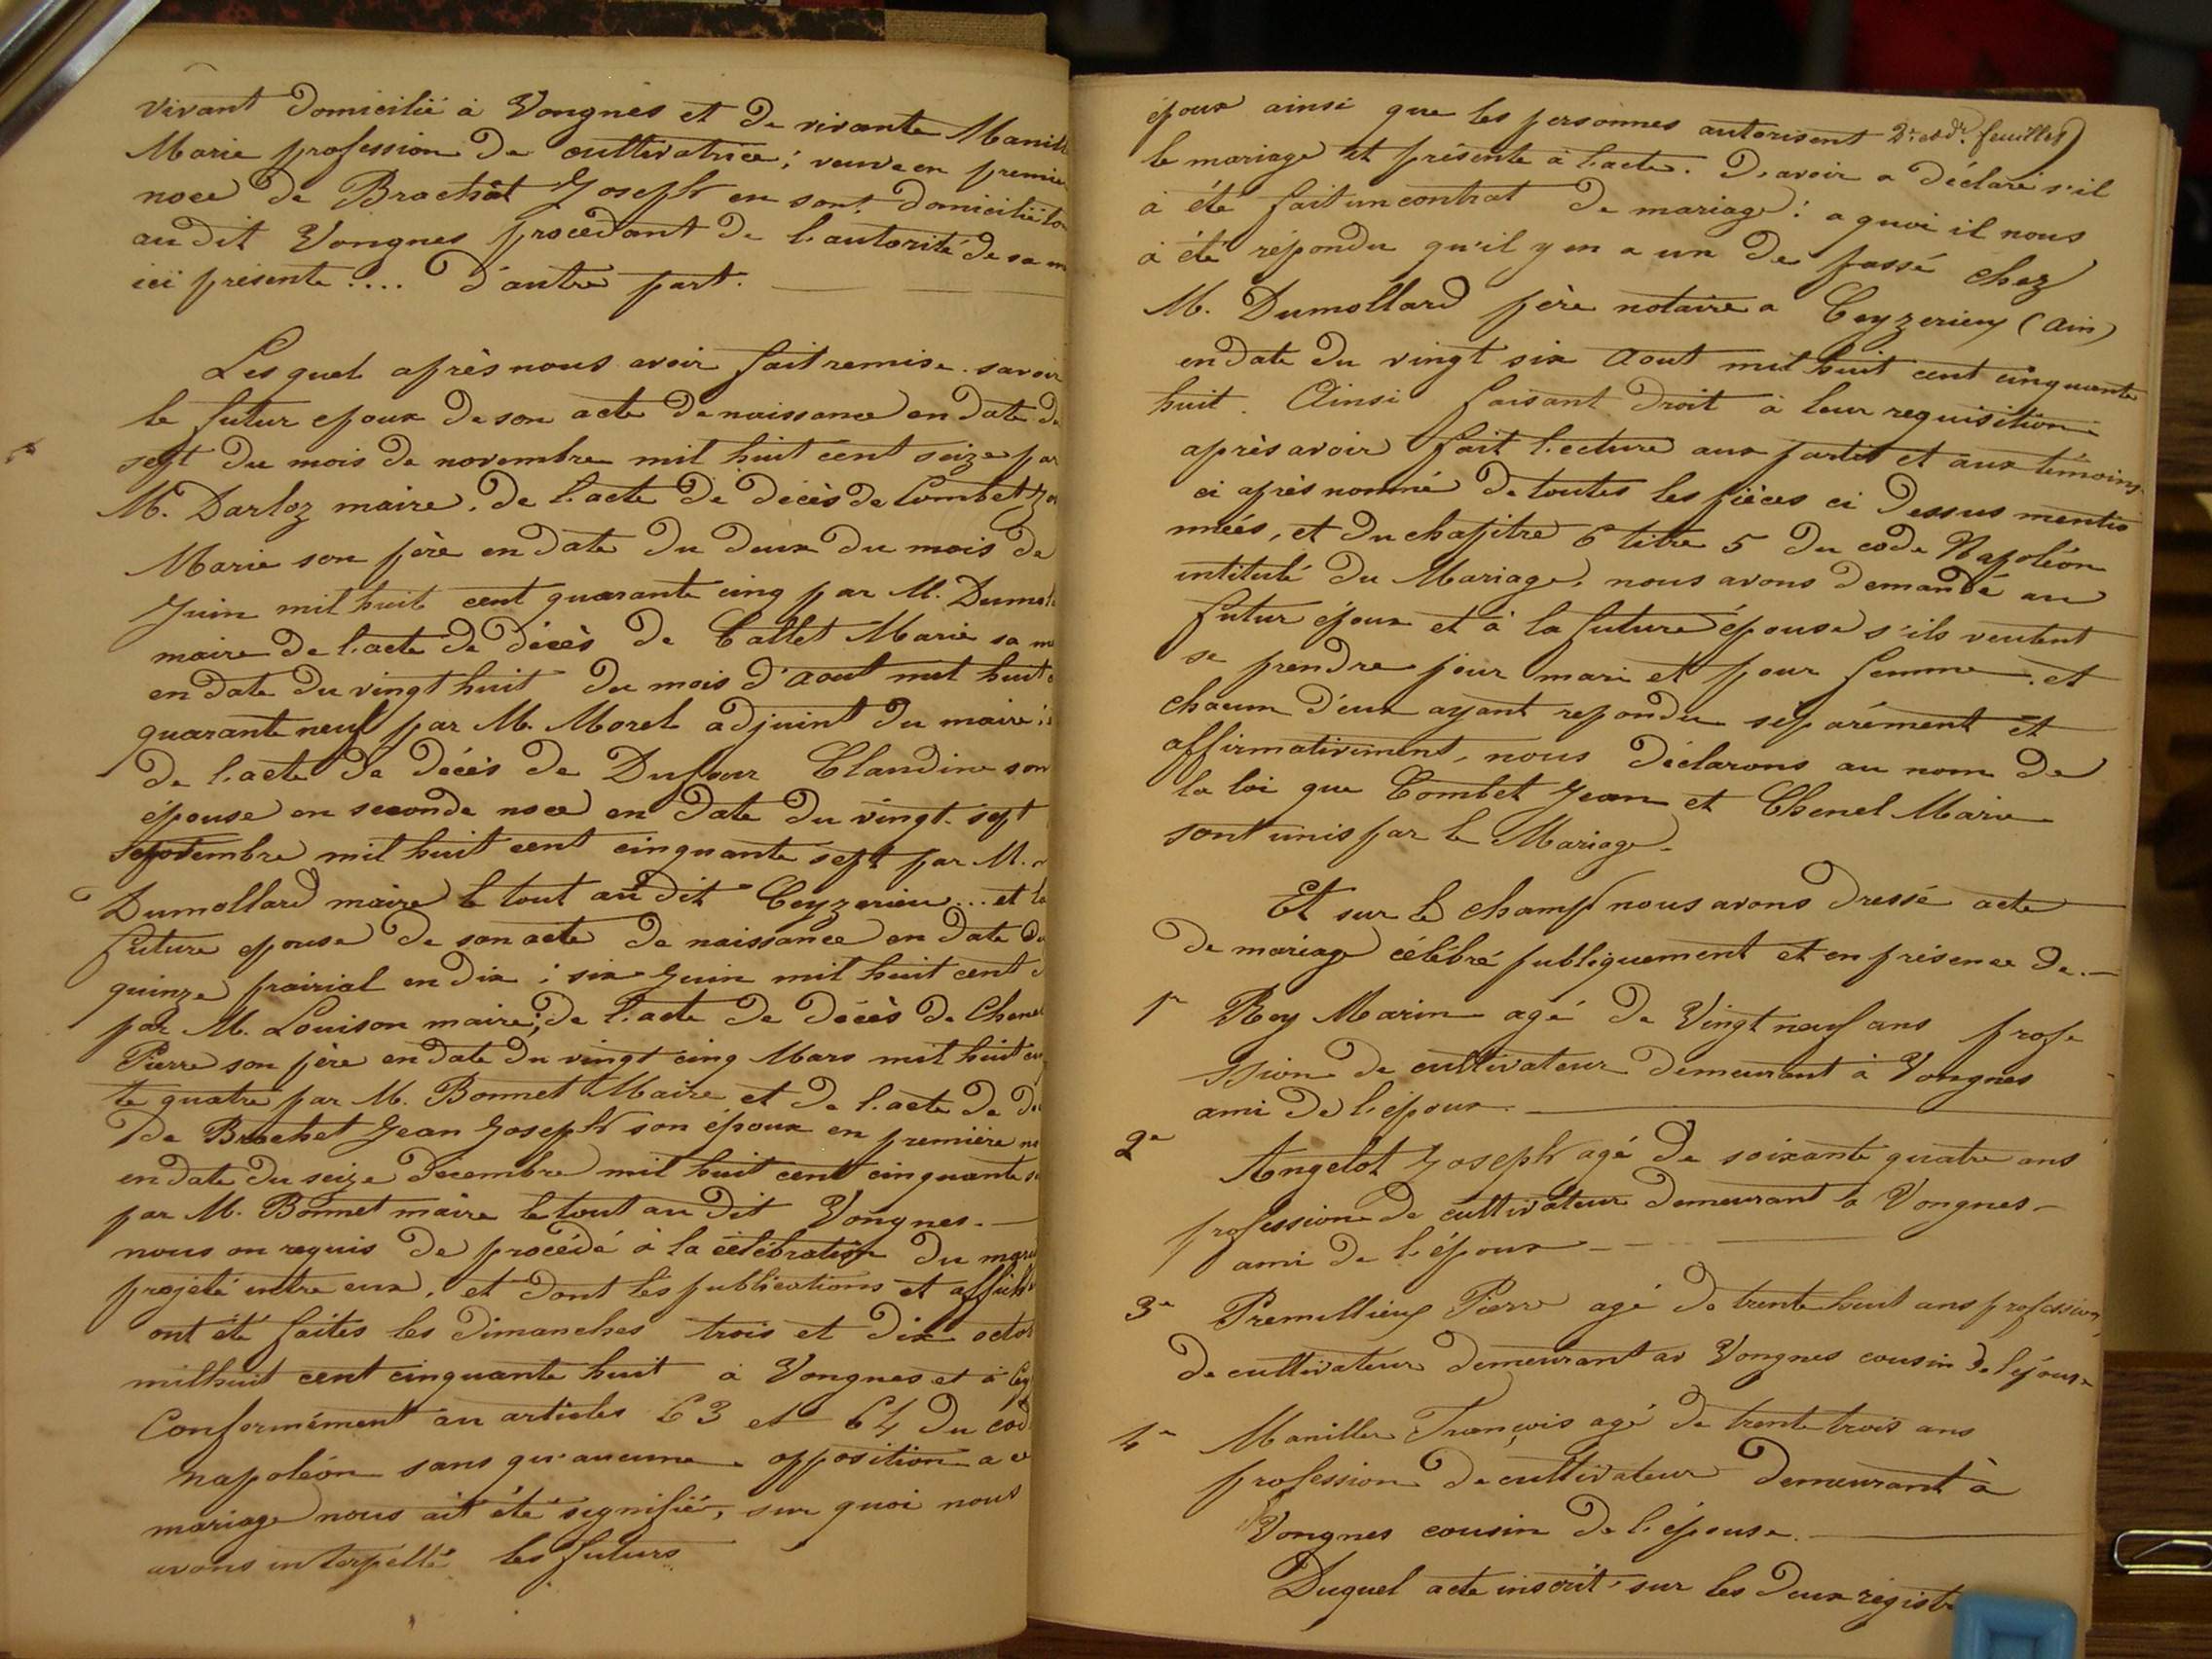 vivant domicilié à Vongnes et de vivante Manill
Marie profession de cultivatrice; veuve en premie
noce de Brochet Joseph en sont domicilié to
au dit Vongnes procedant de l'autorité de sa m
ici présente .... d'autre part.
Lesquel après nous avoir fait remise savoir
le futur epoux de son acte de naissance en date du
sept du mois de novembre mil huit cent seize par
M. Darloz maire, de l'acte de décès de Combet
Marie son père en date du deux du mois de
Juin mil huit cent quarante cinq par M. Dumol
maire de l'acte de décès de Callet Marie sa m
en date du vingt huit du mois d'aout mil huit c
quarante neuf par M. Morel adjoint du maire;
de l'acte de décès de Dufour Claudine son
épouse en seconde noce en date du vingt-sept
Septembre mil huit cent cinquante sept par M.
Dumollard maire le tout au dit Ceyzerieu ... et la
future epouse de son acte de naissance en date du
quinze prairial en dix; six Juin mil huit cent
par M. Louison maire; de l'acte de décès de Chenel
Pierre son père en date du vingt cinq Mars mil huit cen
te quatre par M. Bonnet Maire et de l'acte de dé
de Brochet Jean Joseph son époux en première no
en date du seize décembre mil huit cent cinquante s
par M. Bonnet maire le tout au dit Vongnes.
nous on requis de procédé à la célébration du mari
projeté entre eux, et dont les publications et affich
ont été faites les dimanches trois et dix octob
mil huit cent cinquante huit à Vongnes et à Cey
Conformément au articles 63 et 64 du cod
napoléon sans qu'aucune opposition a c
mariage nous ait été signifiée, sur quoi nous
avons interpellé les futurs
époux ainsi que les personnes autorisent 2e et dr. feuillet
le mariage et présente à l'acte. D'avoir a déclaré s'il
a été fait un contrat de mariage: a quoi il nous
a été répondu qu'il y en a un de passé chez
M. Dumollard père notaire a Ceyzerieu (ain)
en date du vingt six Aout mil huit cent cinquante
huit. Ainsi faisant droit à leur requisition
après avoir fait lecture aux partis et aux témoins
ci après nommé de toutes les pièces ci dessus mentio
nnées, et du chapitre 6 titre 5 du code Napoléon
intitulé du Mariage, nous avons demandé au
futur époux et à la future épouse s'ils veulent
se prendre pour mari et pour femme. et
chacun d'eux ayant repondu séparément et
affirmativement, nous déclarons au nom de
la loi que Combet Jean et Chenel Marie
sont unis par le Mariage.
Et sur le champ nous avons dressé acte
de mariage célébré publiquement et en présence de.
1er Rey Marin agé de Vingt neuf ans profe
ssion de cultivateur demeurant à Vongnes
ami de l'époux.
2e Angelot Joseph agé de soixante quatre ans
profession de cultivateur demeurant à Vongnes
ami de l'époux
3e Premillieux Pierre agé de trente huit ans profession
de cultivateur demeurant a Vongnes cousin de l'épouse
4e Manillier François agé de trente trois ans
profession de cultivateur demeurant à
Vongnes cousin de l'épouse.
Duquel acte inscrit sur les deux régist